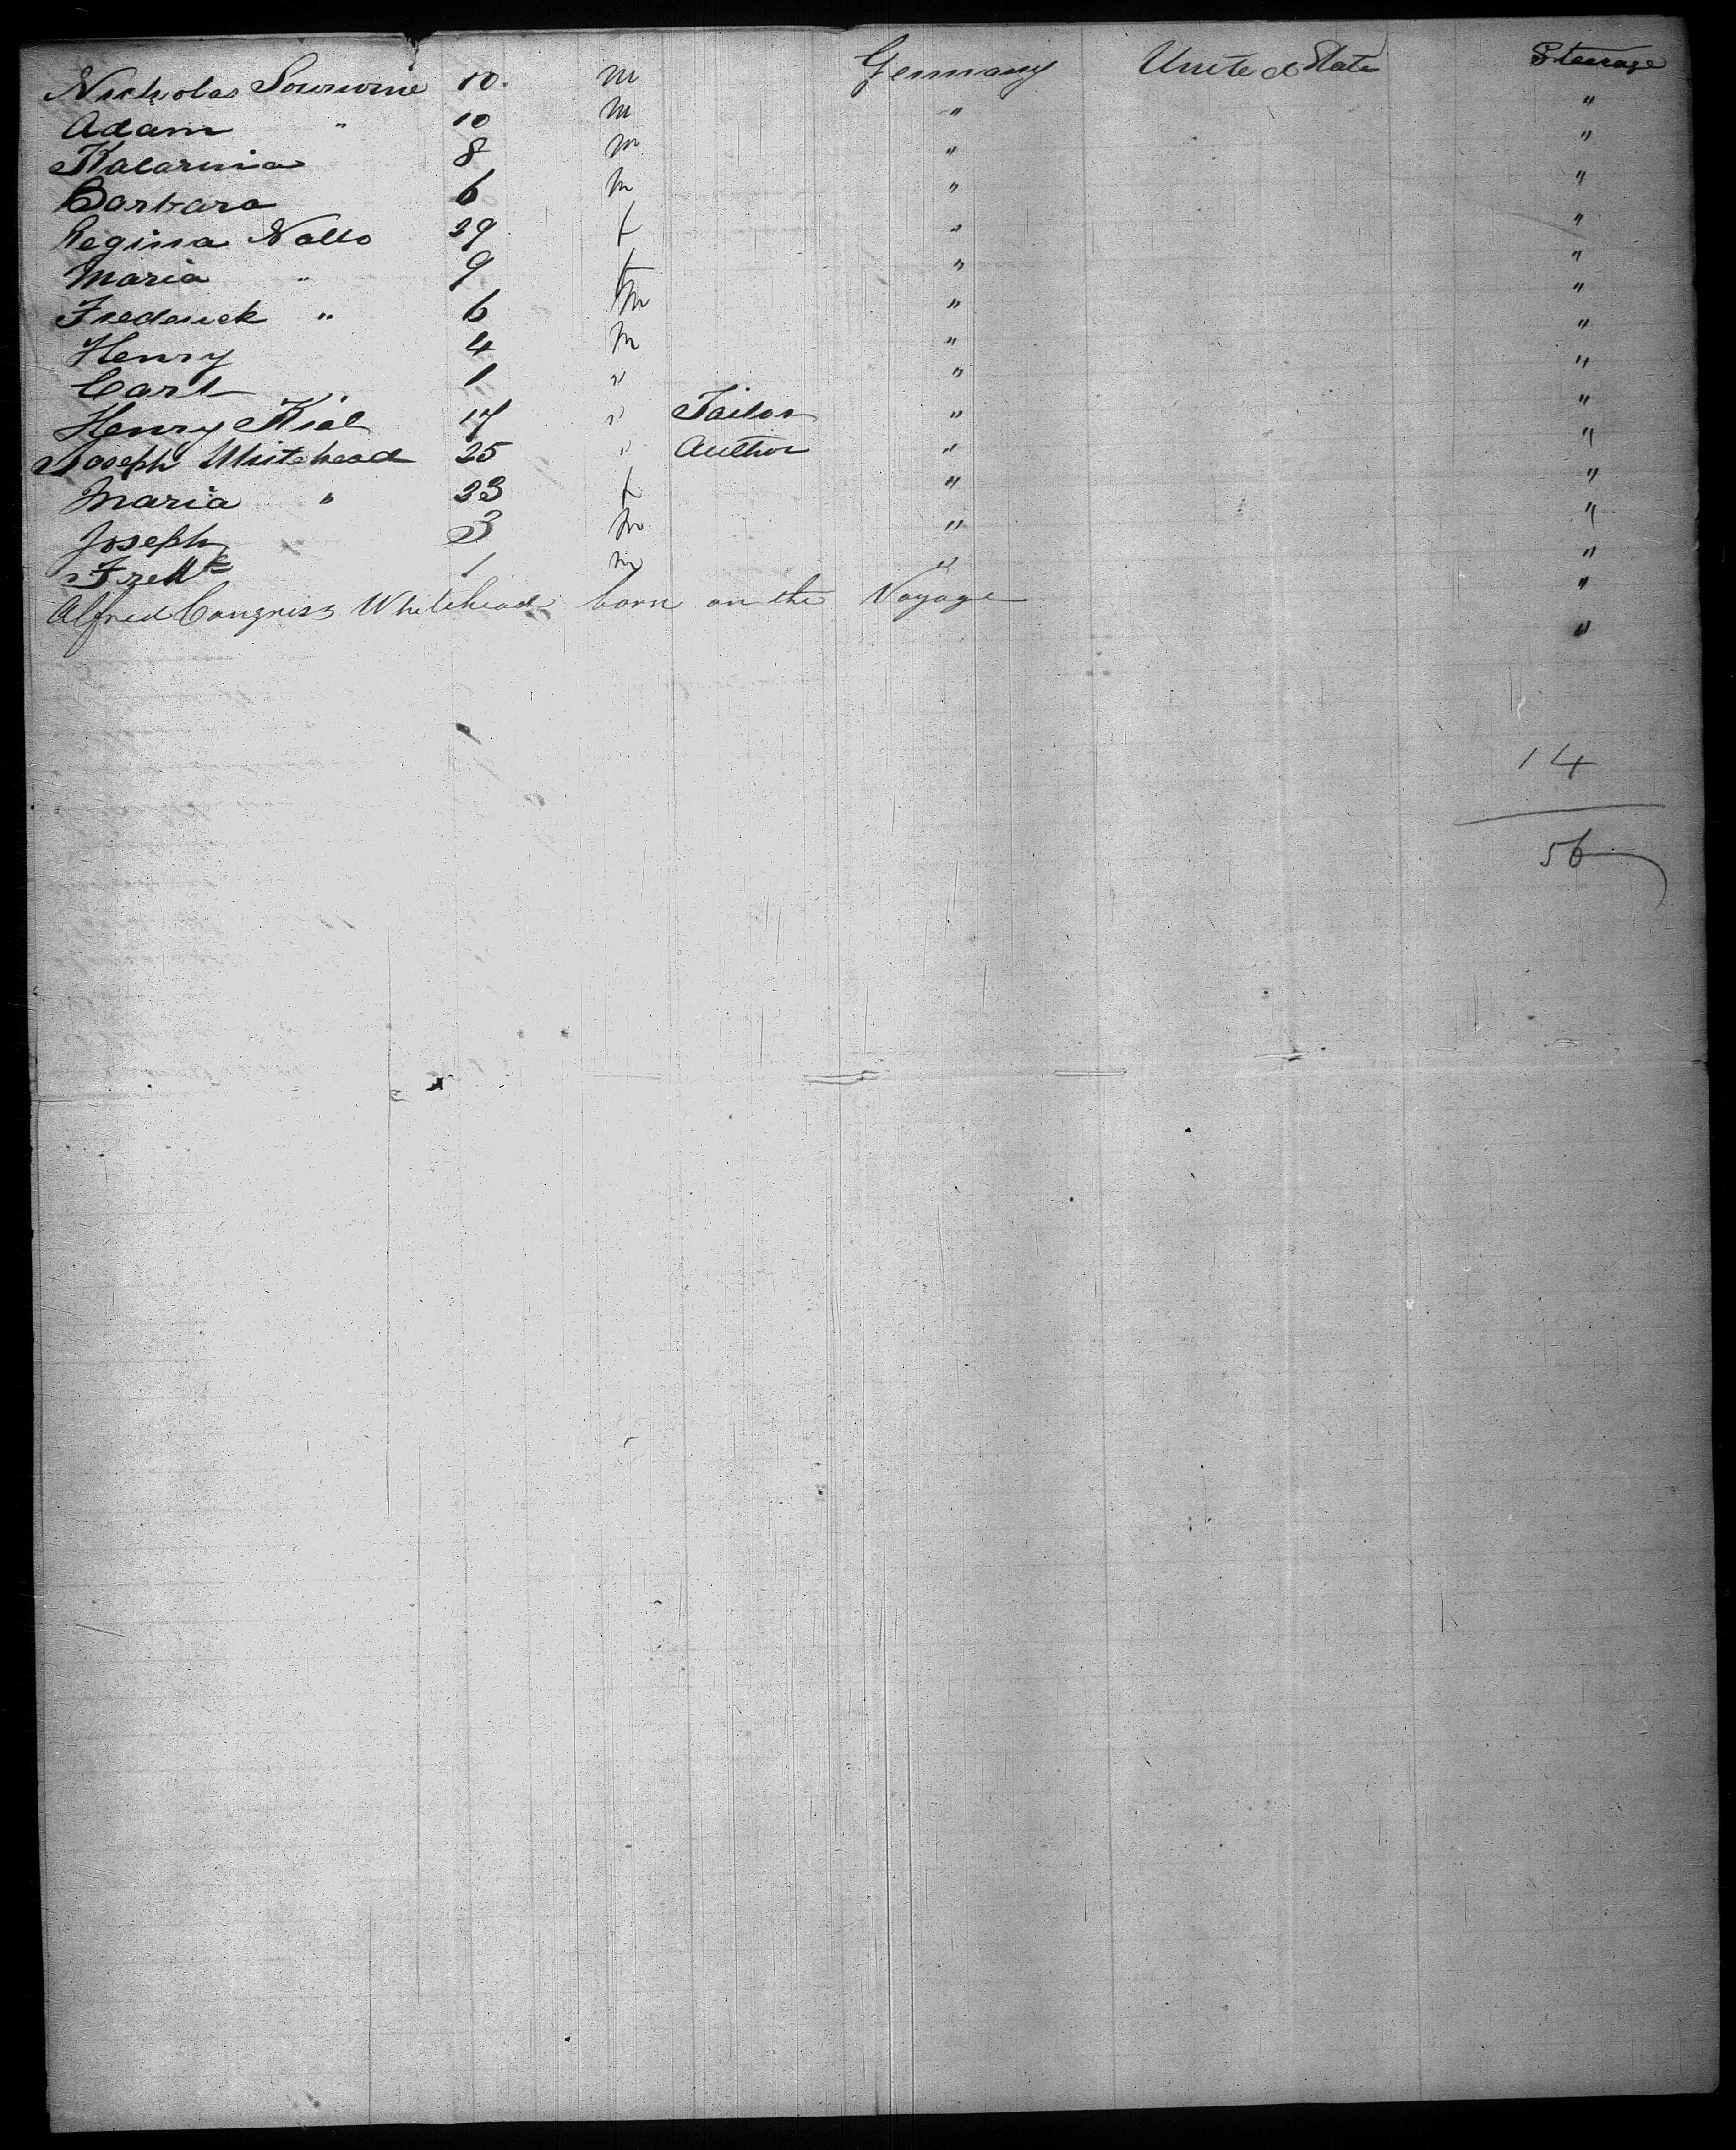 Nicholas 10. m Germany United State Steerage
Adam " 10 m " "
Katarina 8 m " "
Barbara 6 m " "
Regina Nollo 29 f " "
Maria " 9 f " "
Frederick " 6 m " "
Henry 4 m " "
Carl 1 " " "
Henry Kiel 17 " Tailor " "
Joseph Whitehead 25 " Author " "
Maria " 23 f " "
Joseph 3 m " "
1 m " "
Alfred Congress Whitehead born on the Voyage "
"
14
56